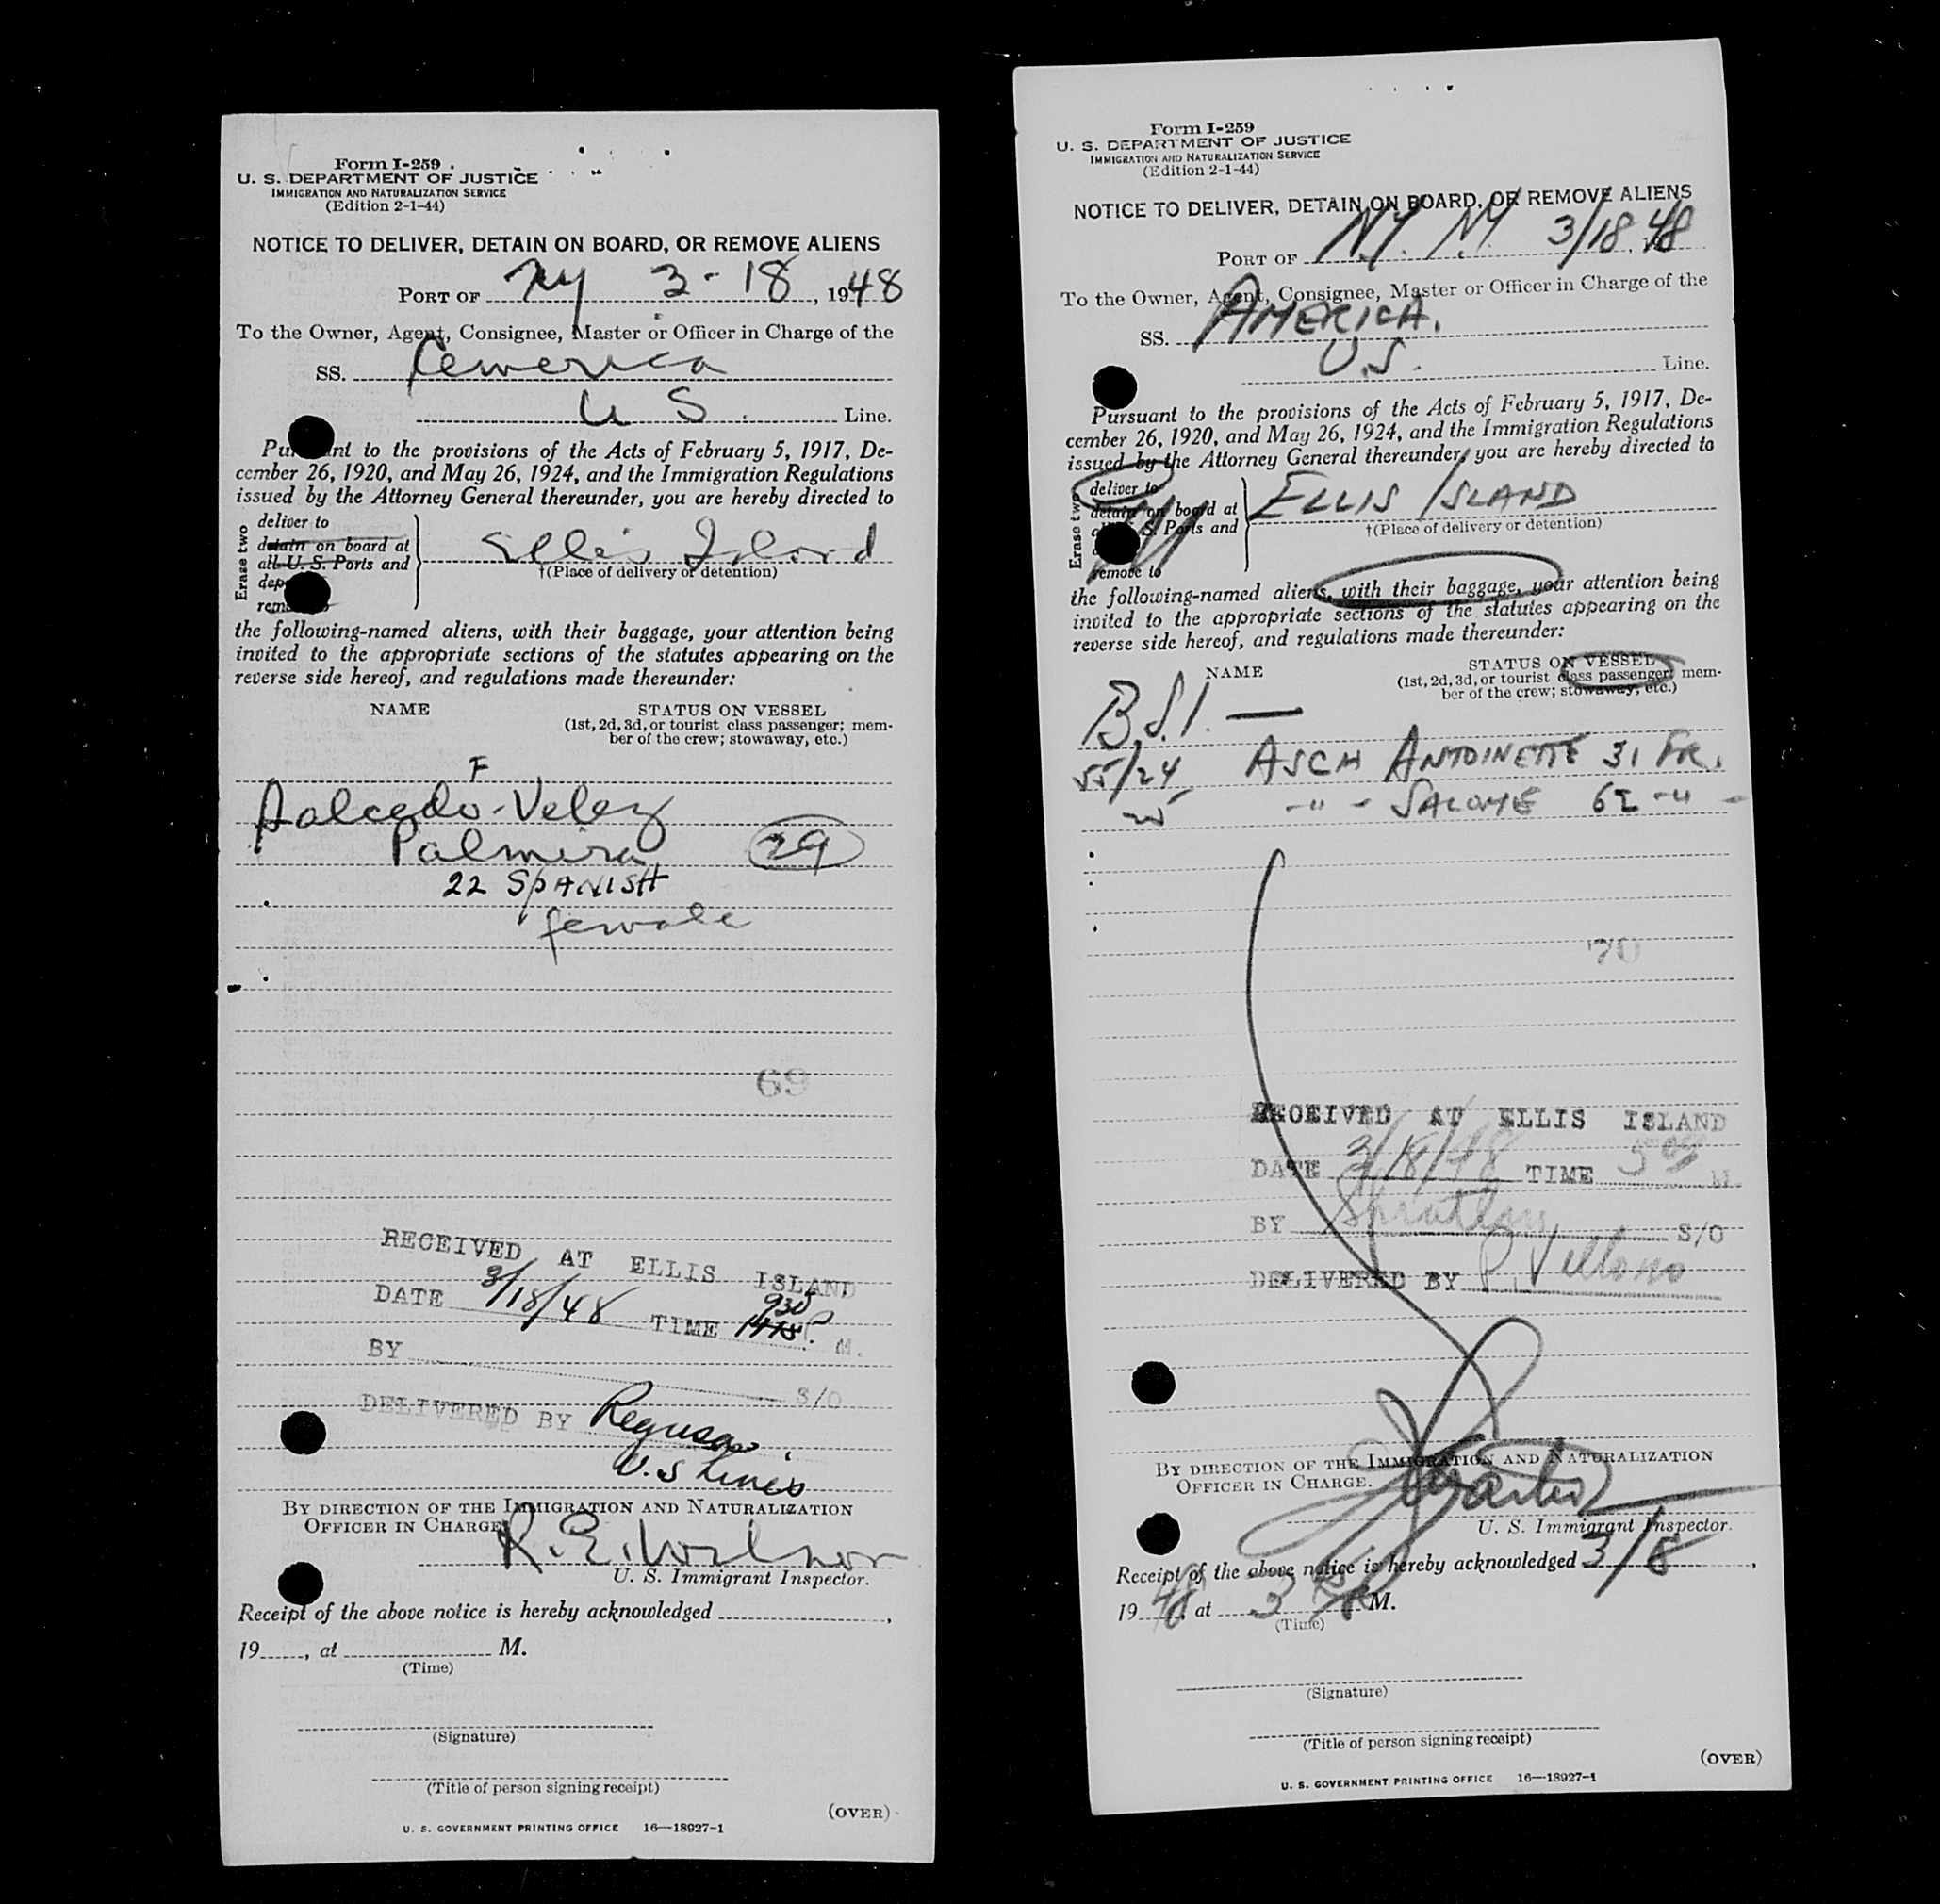 Form I-259
U. S. DEPARTMENT OF JUSTICE
IMMIGRATION AND NATURALIZATION SERVICE
(Edition 2-1-44)
NOTICE TO DELIVER, DETAIN ON BOARD, OR REMOVE ALIENS
PORT OF NY 3-18, 1948
To the Owner, Agent, Consignee, Master or Officer in Charge of the
SS. America
U S. Line.
Pursuant to the provisions of the Acts of February 5, 1917, De-
cember 26, 1920, and May 26, 1924, and the Immigration Regulations
issued by the Attorney General thereunder, you are hereby directed to
Erase two
deliver to
detain on board at
all U. S. Ports and
Ellis Island
†(Place of delivery or detention)
the following-named aliens, with their baggage, your attention being
invited to the appropriate sections of the statutes appearing on the
reverse side hereof, and regulations made thereunder:
NAME STATUS ON VESSEL
(1st, 2d, 3d, or tourist class passenger; mem-
ber of the crew; stowaway, etc.)
F
Salcedo-Velez
Palmira 29
22 SPANISH
female
69
RECEIVED AT ELLIS ISLAND
DATE 3/18/48 TIME 930 P. M.
BY S/O
DELIVERED BY Regusa
U.S Lines
BY DIRECTION OF THE IMMIGRATION AND NATURALIZATION
OFFICER IN CHARGE
R. E. Wilson
U. S. Immigrant Inspector.
Receipt of the above notice is hereby acknowledged ,
19 , at M.
(Time)
(Signature)
(Title of person signing receipt)
(OVER)
U. S. GOVERNMENT PRINTING OFFICE 16—18927-1
Form I-259
U. S. DEPARTMENT OF JUSTICE
IMMIGRATION AND NATURALIZATION SERVICE
(Edition 2-1-44)
NOTICE TO DELIVER, DETAIN ON BOARD, OR REMOVE ALIENS
PORT OF N.Y. N.Y. 3/18, 48
To the Owner, Agent, Consignee, Master or Officer in Charge of the
SS. AMERICA.
U.S. Line.
Pursuant to the provisions of the Acts of February 5, 1917, De-
cember 26, 1920, and May 26, 1924, and the Immigration Regulations
issued by the Attorney General thereunder, you are hereby directed to
Erase two
deliver to
detain on board at
S. Ports and
remove to
ELLIS ISLAND
†(Place of delivery or detention)
the following-named aliens, with their baggage, your attention being
invited to the appropriate sections of the statutes appearing on the
reverse side hereof, and regulations made thereunder:
NAME STATUS ON VESSEL
(1st, 2d, 3d, or tourist class passenger; mem-
ber of the crew; stowaway, etc.)
B.S.I. —
55/24 ASCH ANTOINETTE 31 FR.
25 -"- SALOME -"-
70
RECEIVED AT ELLIS ISLAND
DATE 3/18/48 TIME M.
BY Spratley S/O
DELIVERED BY
BY DIRECTION OF THE IMMIGRATION AND NATURALIZATION
OFFICER IN CHARGE.
U. S. Immigrant Inspector.
Receipt of the above notice is hereby acknowledged 3/8 ,
1948, at 3 M.
(Time)
(Signature)
(Title of person signing receipt)
(OVER)
U. S. GOVERNMENT PRINTING OFFICE 16—18927-1